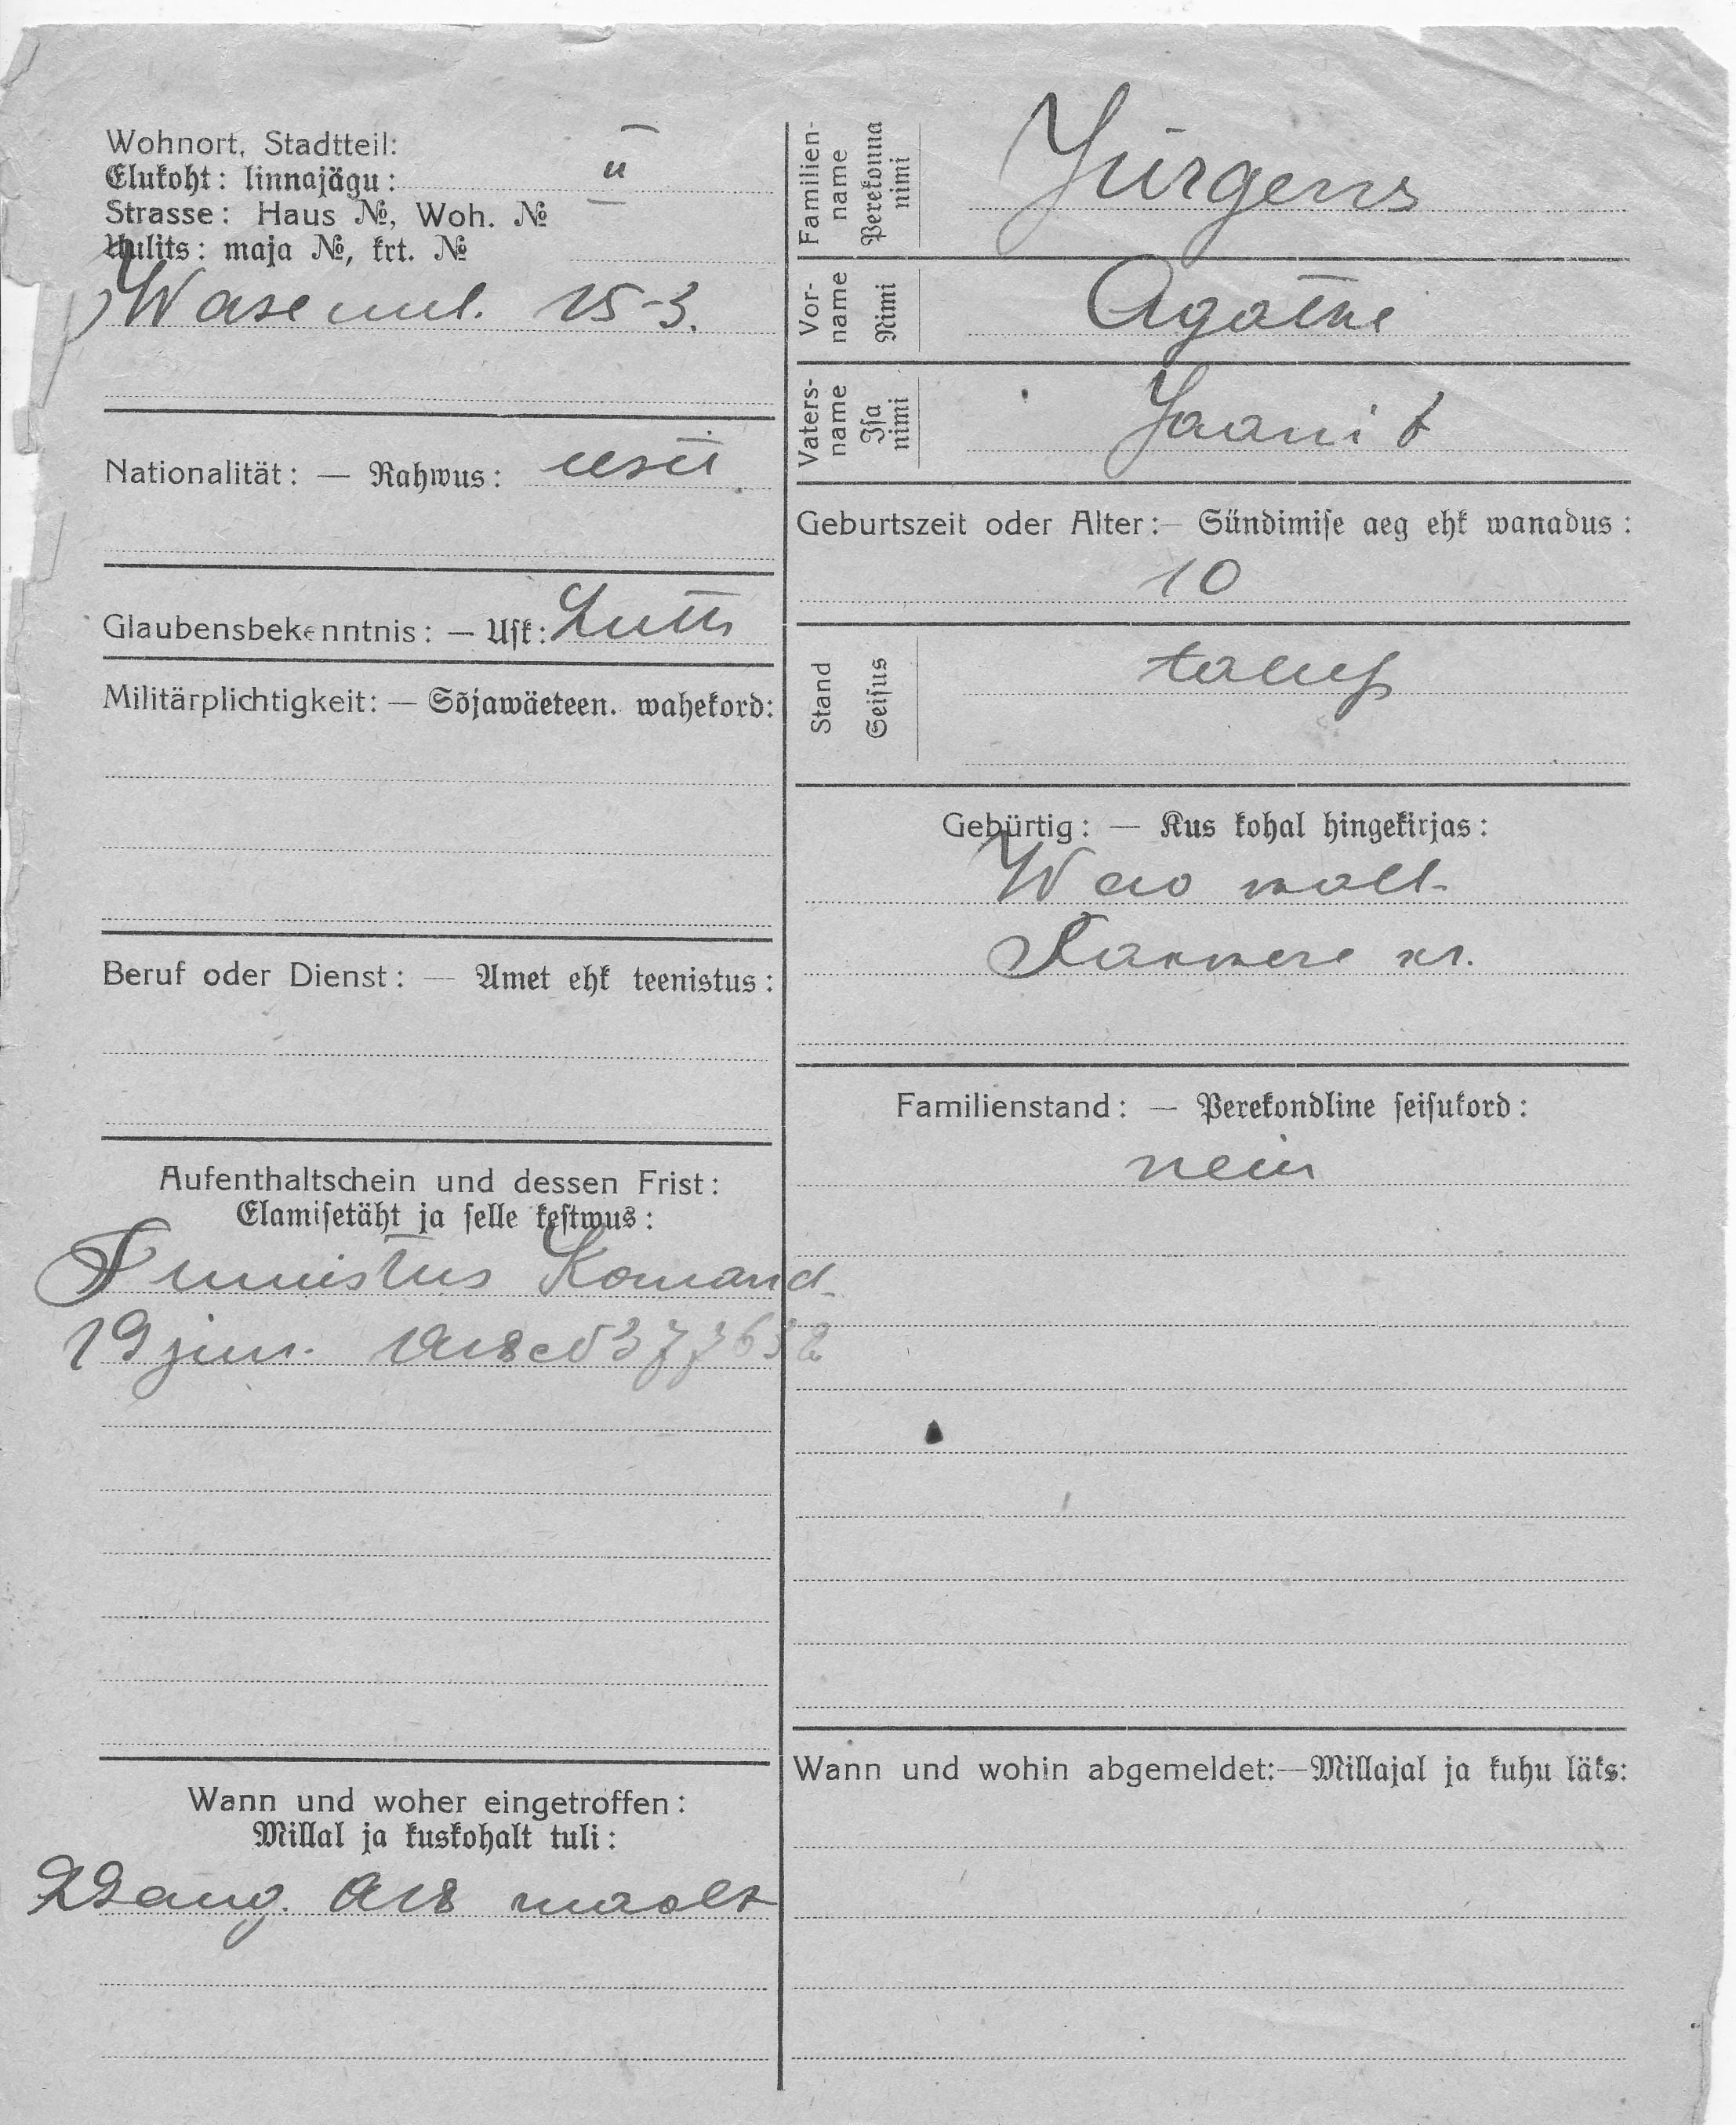 Wohnort, Stadtteil:
Elukoht: linnajägu: II
Strasse: Haus №, Woh. №
Uulits: maja №, krt. №
Wase uul. 15-3.
Nationalität: — Rahwus: eesti
Glaubensbekenntnis: — Usk: Luth
Militärplichtigkeit: — Sõjawäeteen. wahekord:
Beruf oder Dienst: — Amet ehk teenistus:
Aufenthaltschein und dessen Frist:
Elamisetäht ja selle kestwus:
Tunnistus Komand.
19 juu.
Wann und woher eingetroffen:
Millal ja kuskohalt tuli:
29 aug. 918 maalt
Familien-
name
Perekonna
nimi
Jürgens
Vor-
name
Nimi
Agathe
Vaters-
name
Isa
nimi
Jaani t
Geburtszeit oder Alter:— Sündimise aeg ehk wanadus:
10
Stand
Seisus
talup
Gebürtig: — Kus kohal hingekirjas:
Wao wall.
Rakwere kr.
Familienstand: — Perekondline seisukord:
nein
Wann und wohin abgemeldet:—Millajal ja kuhu läks: